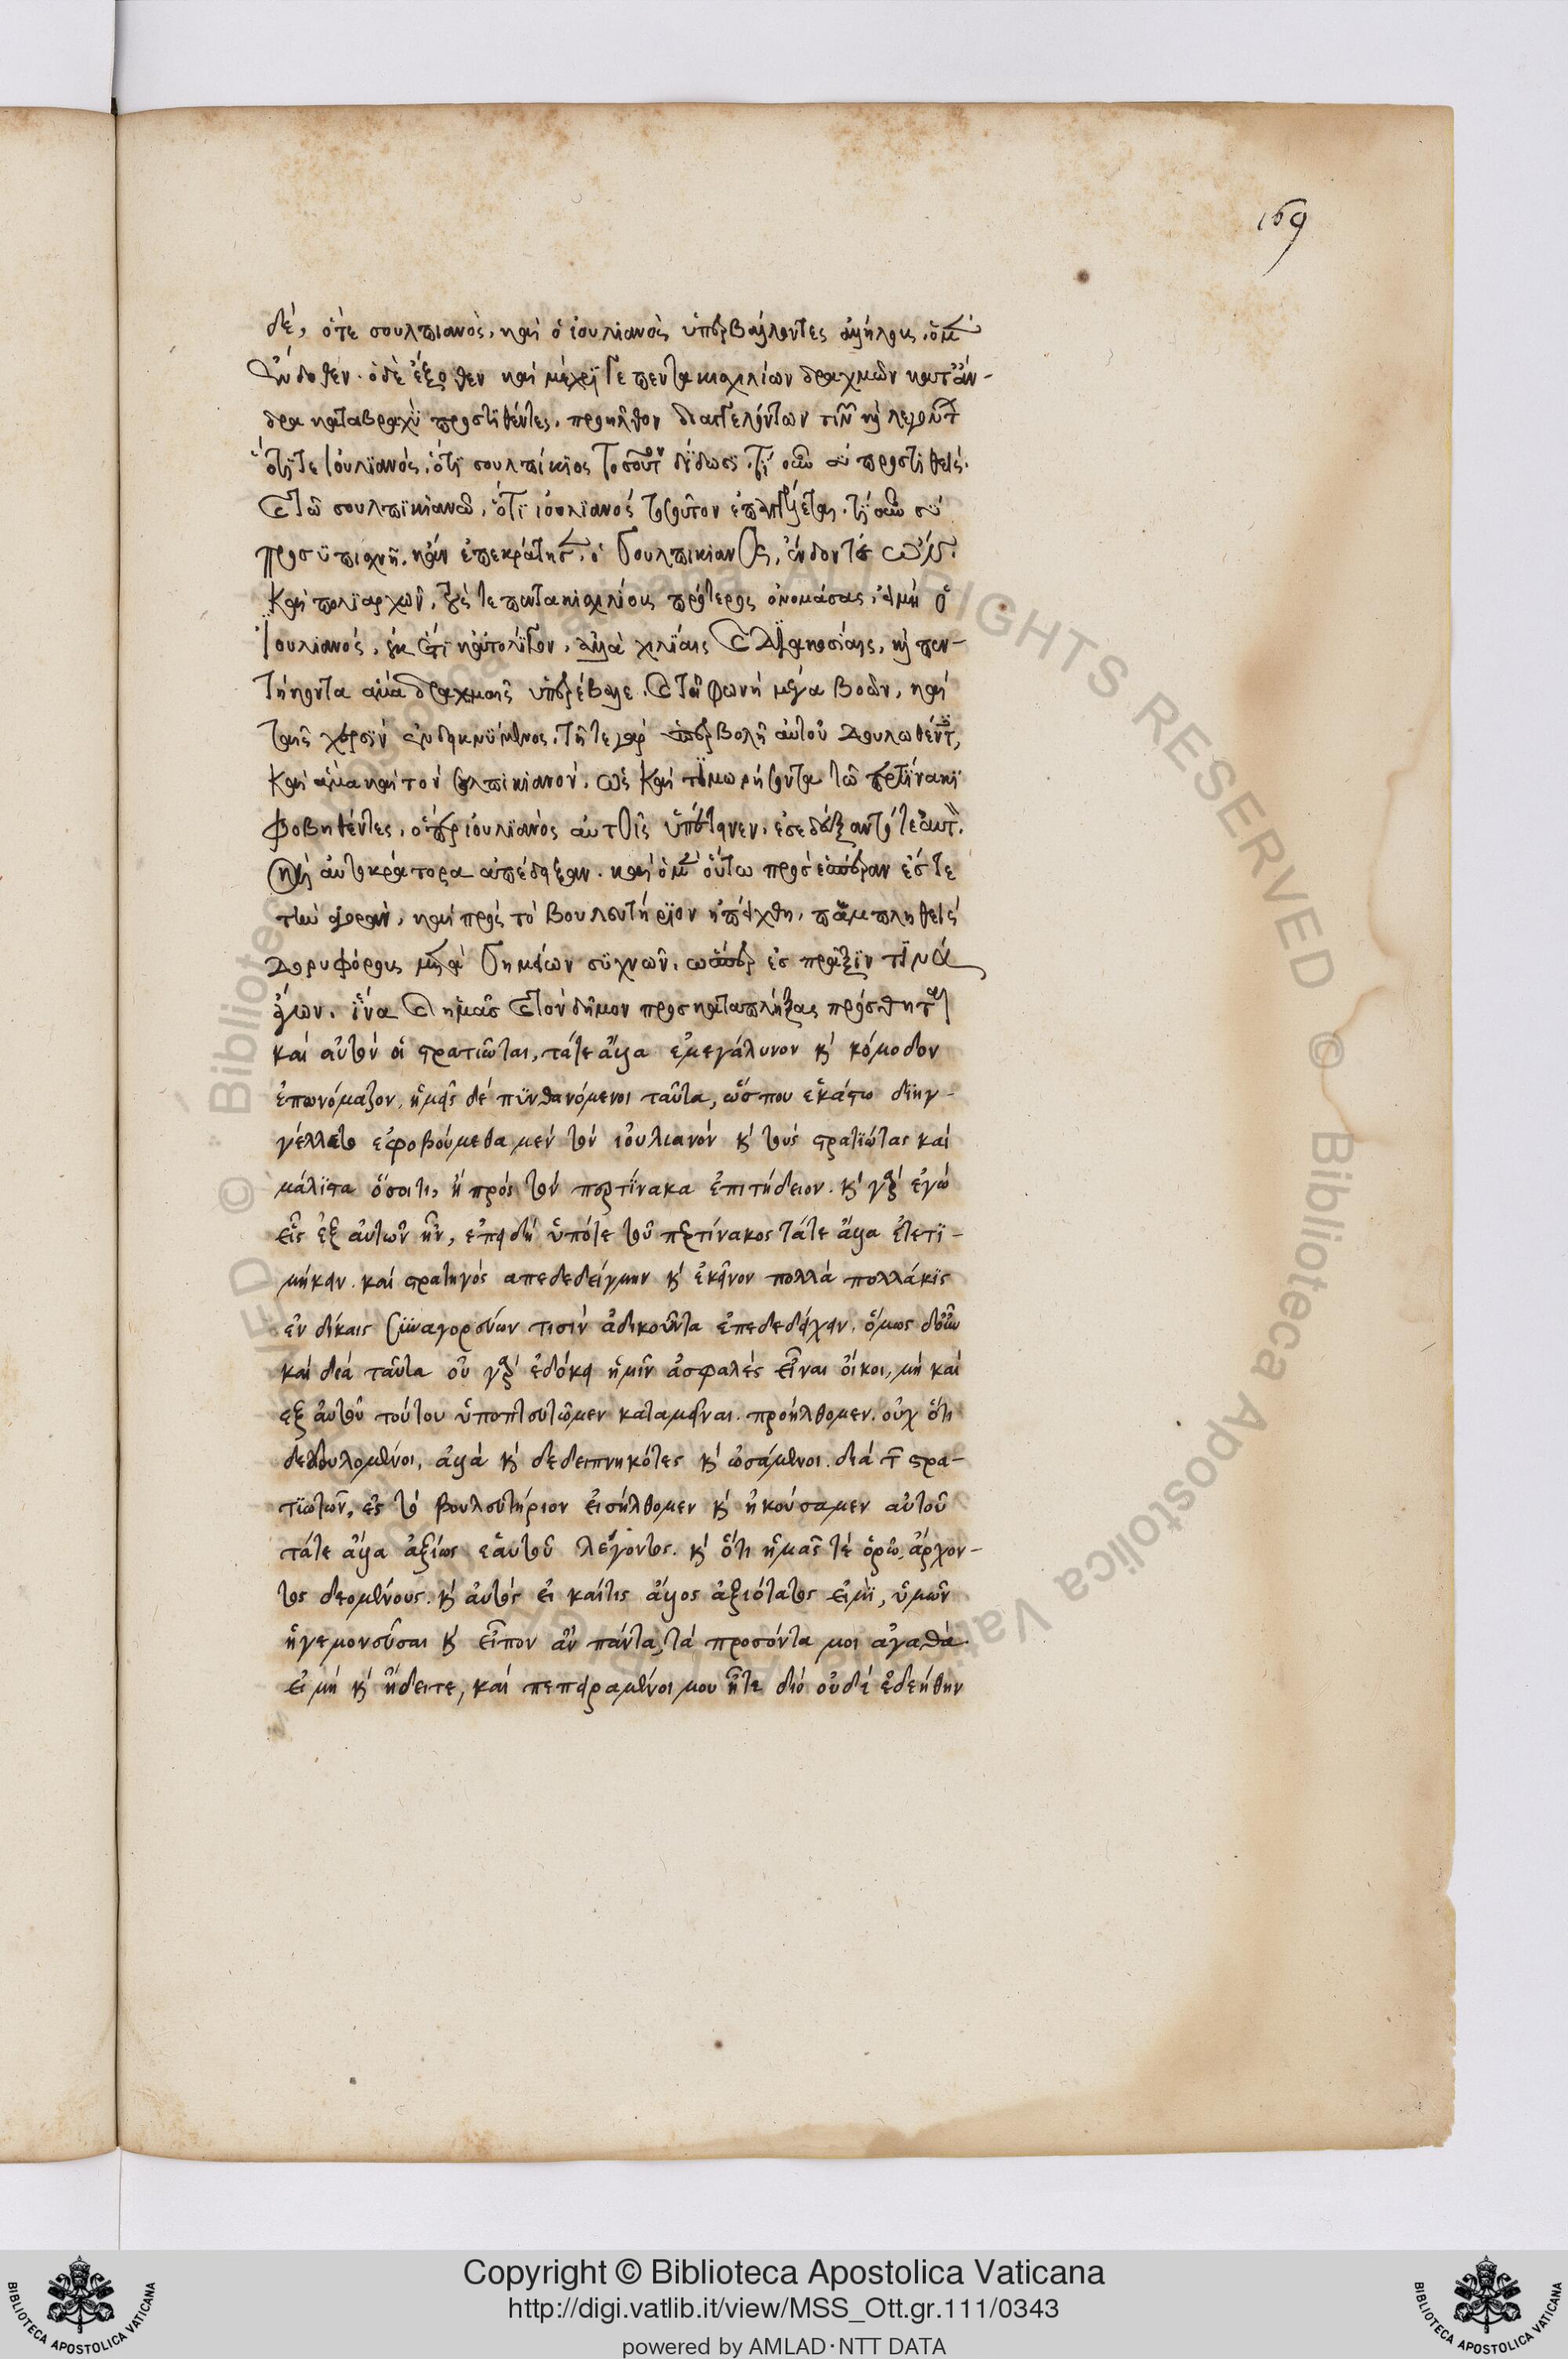 δέ, ὅτε σουλπιανὸς, καὶ ὁ ἰουλιανὸς ὑπερβάλλοντες ἀλλήλους. ὁ μὲν
ἔνδοθεν. ὁ δὲ ἔξωθεν καὶ μέχρϊ γε πεντακισχιλίων δραχμῶν κατ' ἄν-
δρα καταβραχὺ προστϊθέντες. προῆλθον διαγγελόντων τινῶν καὶ λεγόντων
ὅτϊ τε ἰουλϊανός. ὅτϊ σουλπίκϊος τοσοῦτον δίδωσϊ. τί οὖν σὺ προστϊθεῖς.
καὶ τῶ σουλπϊκϊανῶ, ὅτϊ ἰουλϊανός τοσοῦτον ἐπαγγέλλεται. τί οὖν σύ
προσϋπισχνῆ. κἂν ἐπεκράτησεν. ὁ σουλπικιανὸς, ἔνδον τὲ ὢν.
καὶ πολϊαρχῶν, τάς τε πεντακισχιλίους πρότερος ὀνομάσας, εἰ μὴ ὁ
ἰουλιανός, οὐκ ἔτϊ κατολίγον, ἀλλὰ χιλϊαις καὶ διακοσίαις, καὶ πεν-
τήκοντα ἅμα δραχμαῖς ὑπερέβαλε. καὶ τῆ φωνῆ μέγα βοῶν, καὶ
ταῖς χερσϊν ἐνδεικνϋμενος. τῆ τε γὰρ ὑπερβολῆ αὐτοῦ δουλωθέντες,
καὶ ἅμα καὶ τὸν σουλπικιανόν. ὡς καὶ τϊμωρήσοντα τῶ περτϊνακϊ
φοβηθέντες. ὅπερ ἰουλϊανὸς αὐτοῖς ὑπέτεινεν. ἐσεδέξαντό τε αὐτόν.
καὶ αὐτοκράτορα ἀπέδειξαν. καὶ ὁ μὲν οὕτω προς ἑσπέραν ἔς τε
τὴν ἀγορὰν, καὶ πρὸς τὸ βουλευτήριον ἠπείχθη, παμπληθεῖς
δορυφόρους μετὰ σημείων συχνῶν. ὥσπερ ἐς πρᾶξϊν τϊνὰ
ἄγων. ἵνα καὶ ἡμᾶς καὶ τὸν δῆμον προσκαταπλήξας πρόσθηται
καὶ αὐτὸν οἱ στρατιῶται, τάτε ἄλλα ἐμεγάλυνον καὶ κόμοδον
ἐπωνόμαζον. ἡμεῖς δέ πϋνθανόμενοι ταῦτα, ὥς που ἑκάστω διηγ-
γέλλετο ἐφοβούμεθα μὲν τὸν ἰουλιανόν καὶ τοὺς στρατϊώτας καὶ
μάλϊστα ὅσοι τι, ἢ πρὸς τὸν περτϊνακα ἐπιτήδειον. καὶ γὰρ ἐγώ
εἷς ἐξ αὐτῶν ἦν, ἐπειδή ὑπότε τοῦ περτίνακος τάτε ἄλλα ἐτετϊ-
μήκειν. καὶ στρατηγὸς απεδεδείγμην καὶ ἐκεῖνον πολλά πολλάκϊς
ἐν δίκαις συναγορεύων τισὶν ἀδικοῦντα ἐπεδεδείχειν. ὅμως δ' οὖν
καὶ διά ταῦτα οὐ γὰρ ἐδόκει ἡμῖν ἀσφαλές εἶναι οἴκοι, μή καὶ
ἐξ αὐτοῦ τούτου ὑποπτευτῶμεν καταμεῖναι. προήλθομεν. οὐχ ὅτι
δεδουλομένοι, ἀλλὰ καὶ δεδειπνηκότες καὶ ὠσάμενοι. διά τῶν στρα-
τϊωτῶν, ἐς τὸ βουλευτήριον εἰσήλθομεν καὶ ἠκούσαμεν αὐτοῦ
τάτε ἄλλα ἀξίως ἑαυτοῦ λέγοντος. καὶ ὅτι ἡμᾶς τὲ ὁρῶ, ἄρχον-
τος δεομένους. καὶ αὐτὸς εἰ καίτις ἄλλος ἀξιότατος εἰμϊ, ὑμῶν
ἡγεμονεῦσαι καὶ εἶπον ἂν πάντα, τὰ προσόντα μοι ἀγαθὰ
εἰ μή καὶ ἤδειτε, καὶ πεπειραμένοι μου ἦτε διό οὐδὲ ἐδεήθην
169
Copyright © Biblioteca Apostolica Vaticana
http://digi.vatlib.it/view/MSS_Ott.gr.111/0343
powered by AMLAD·NTT DATA